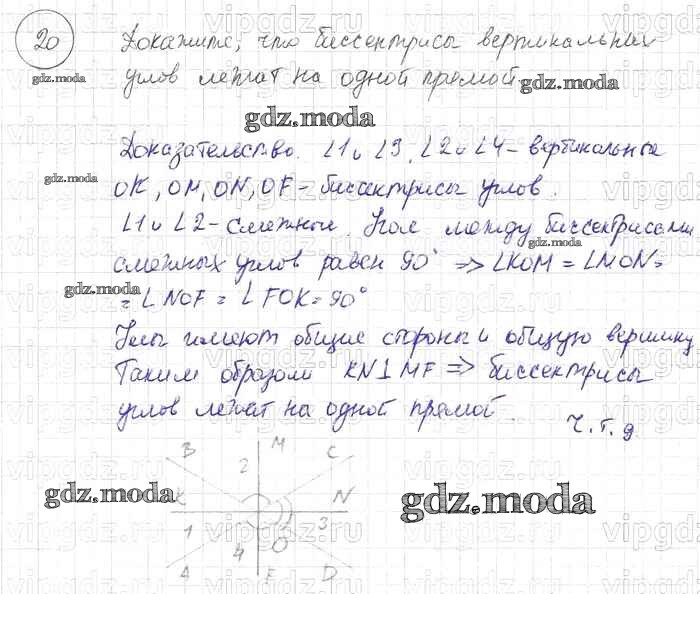 20 Докажите, что биссектрисы вертикальных
углов лежат на одной прямой.
gdz.moda
gdz.moda
gdz.moda
Доказательство. ∠1 и ∠3, ∠2 и ∠4 - вертикальные
gdz.moda
OK, OM, ON, OF - биссектрисы углов.
∠1 и ∠2 - смежные. Угол между биссектрисами
gdz.moda
смежных углов равен 90° => ∠KOM = ∠MON =
gdz.moda
= ∠NOF = ∠FOK = 90°
Углы имеют общие стороны и общую вершину
Таким образом KN⊥MF => биссектрисы
углов лежат на одной прямой.
ч.т.д.
B M C
2
K N
gdz.moda
gdz.moda
1 3
4 O
A F D
vipgdz.ru